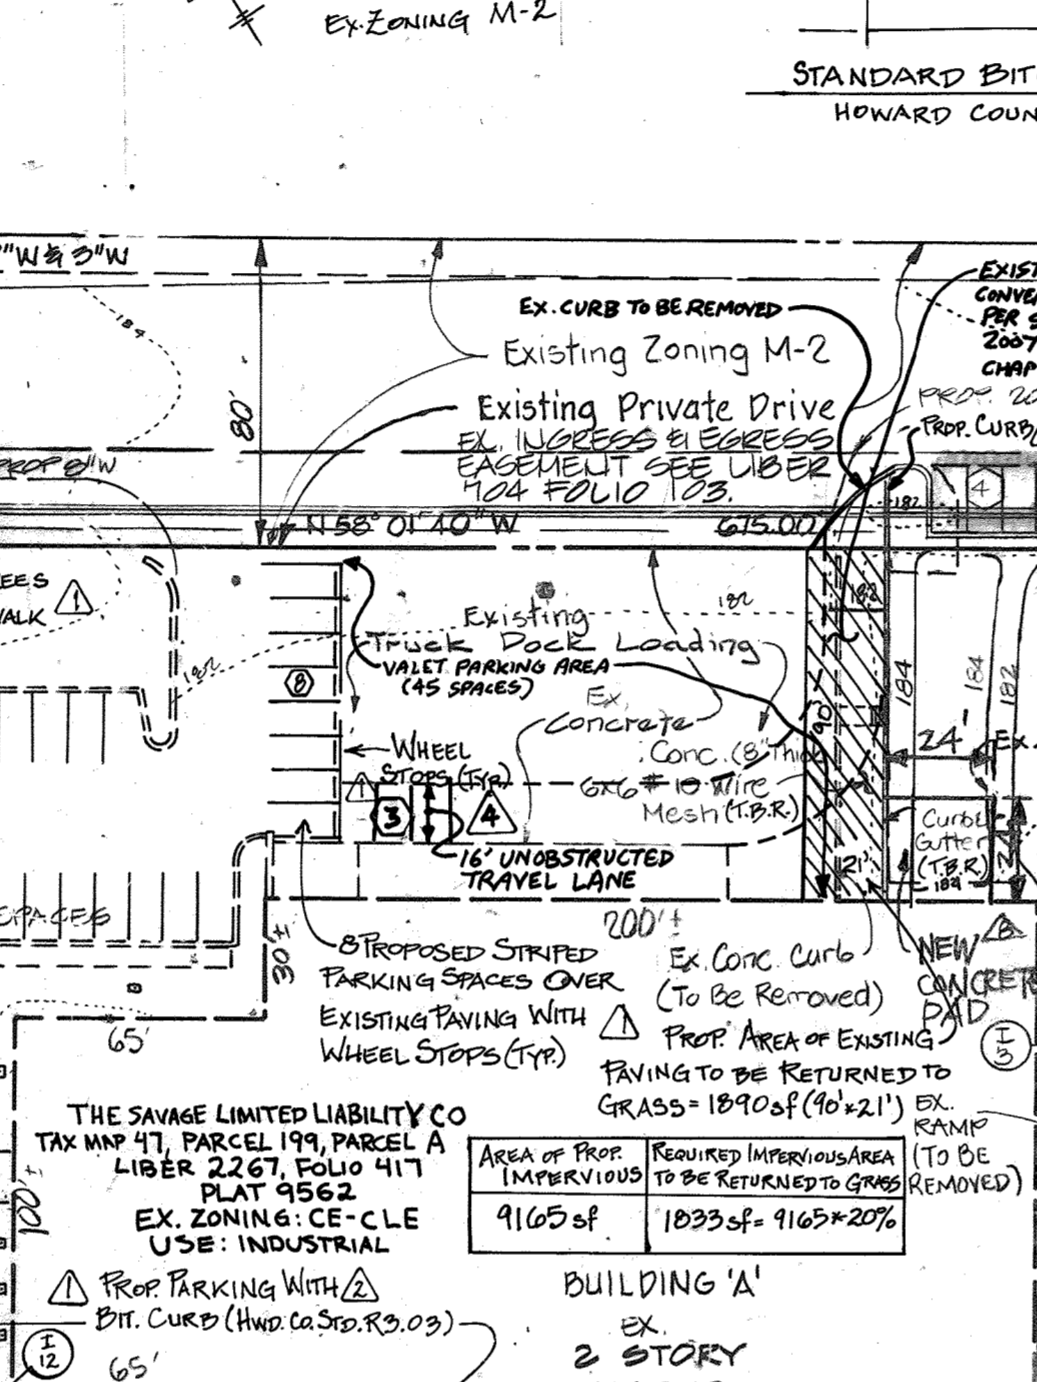 EX. ZONING M-2
STANDARD BIT
HOWARD COUN
"W & 3"W
184
EX. CURB TO BE REMOVED
EXIST
CONVE
PER S
2007
CHAP
Existing Zoning M-2
80'
Existing Private Drive
EX. INGRESS & EGRESS
EASEMENT SEE LIBER
704 FOLIO 103.
PROP. 20
PROP. CURB/
PROP 8"W
4
182
N 58° 01' 40" W
675.00'
EES
ALK
1
182
182
182
Existing
Truck Dock Loading
VALET PARKING AREA
(45 SPACES)
8
184
184
182
90'
Ex.
Concrete
WHEEL
STOPS (TYP.)
Conc. (8" Thick
6x6 # 10 Wire
Mesh (T.B.R.)
24'
EX.
1
3
4
Curb &
Gutter
(T.B.R.)
184
16' UNOBSTRUCTED
TRAVEL LANE
21'
SPACES
30'±
200'±
8 PROPOSED STRIPED
PARKING SPACES OVER
EXISTING PAVING WITH
WHEEL STOPS (TYP.)
Ex. Conc. Curb
(To Be Removed)
NEW
CONCRETE
PAD
65'
1
PROP. AREA OF EXISTING
PAVING TO BE RETURNED TO
GRASS = 1890 sf (90'x21')
I
3
EX.
RAMP
(TO BE
REMOVED)
THE SAVAGE LIMITED LIABILITY CO
TAX MAP 47, PARCEL 199, PARCEL A
LIBER 2267, FOLIO 417
PLAT 9562
EX. ZONING: CE-CLE
USE: INDUSTRIAL
100'±
AREA OF PROP.
IMPERVIOUS
REQUIRED IMPERVIOUS AREA
TO BE RETURNED TO GRASS
9165 sf
1833 sf = 9165 * 20%
1 PROP. PARKING WITH 2
BIT. CURB (HWD. CO. STD. R3.03)
I
12
65'
BUILDING 'A'
EX.
2 STORY